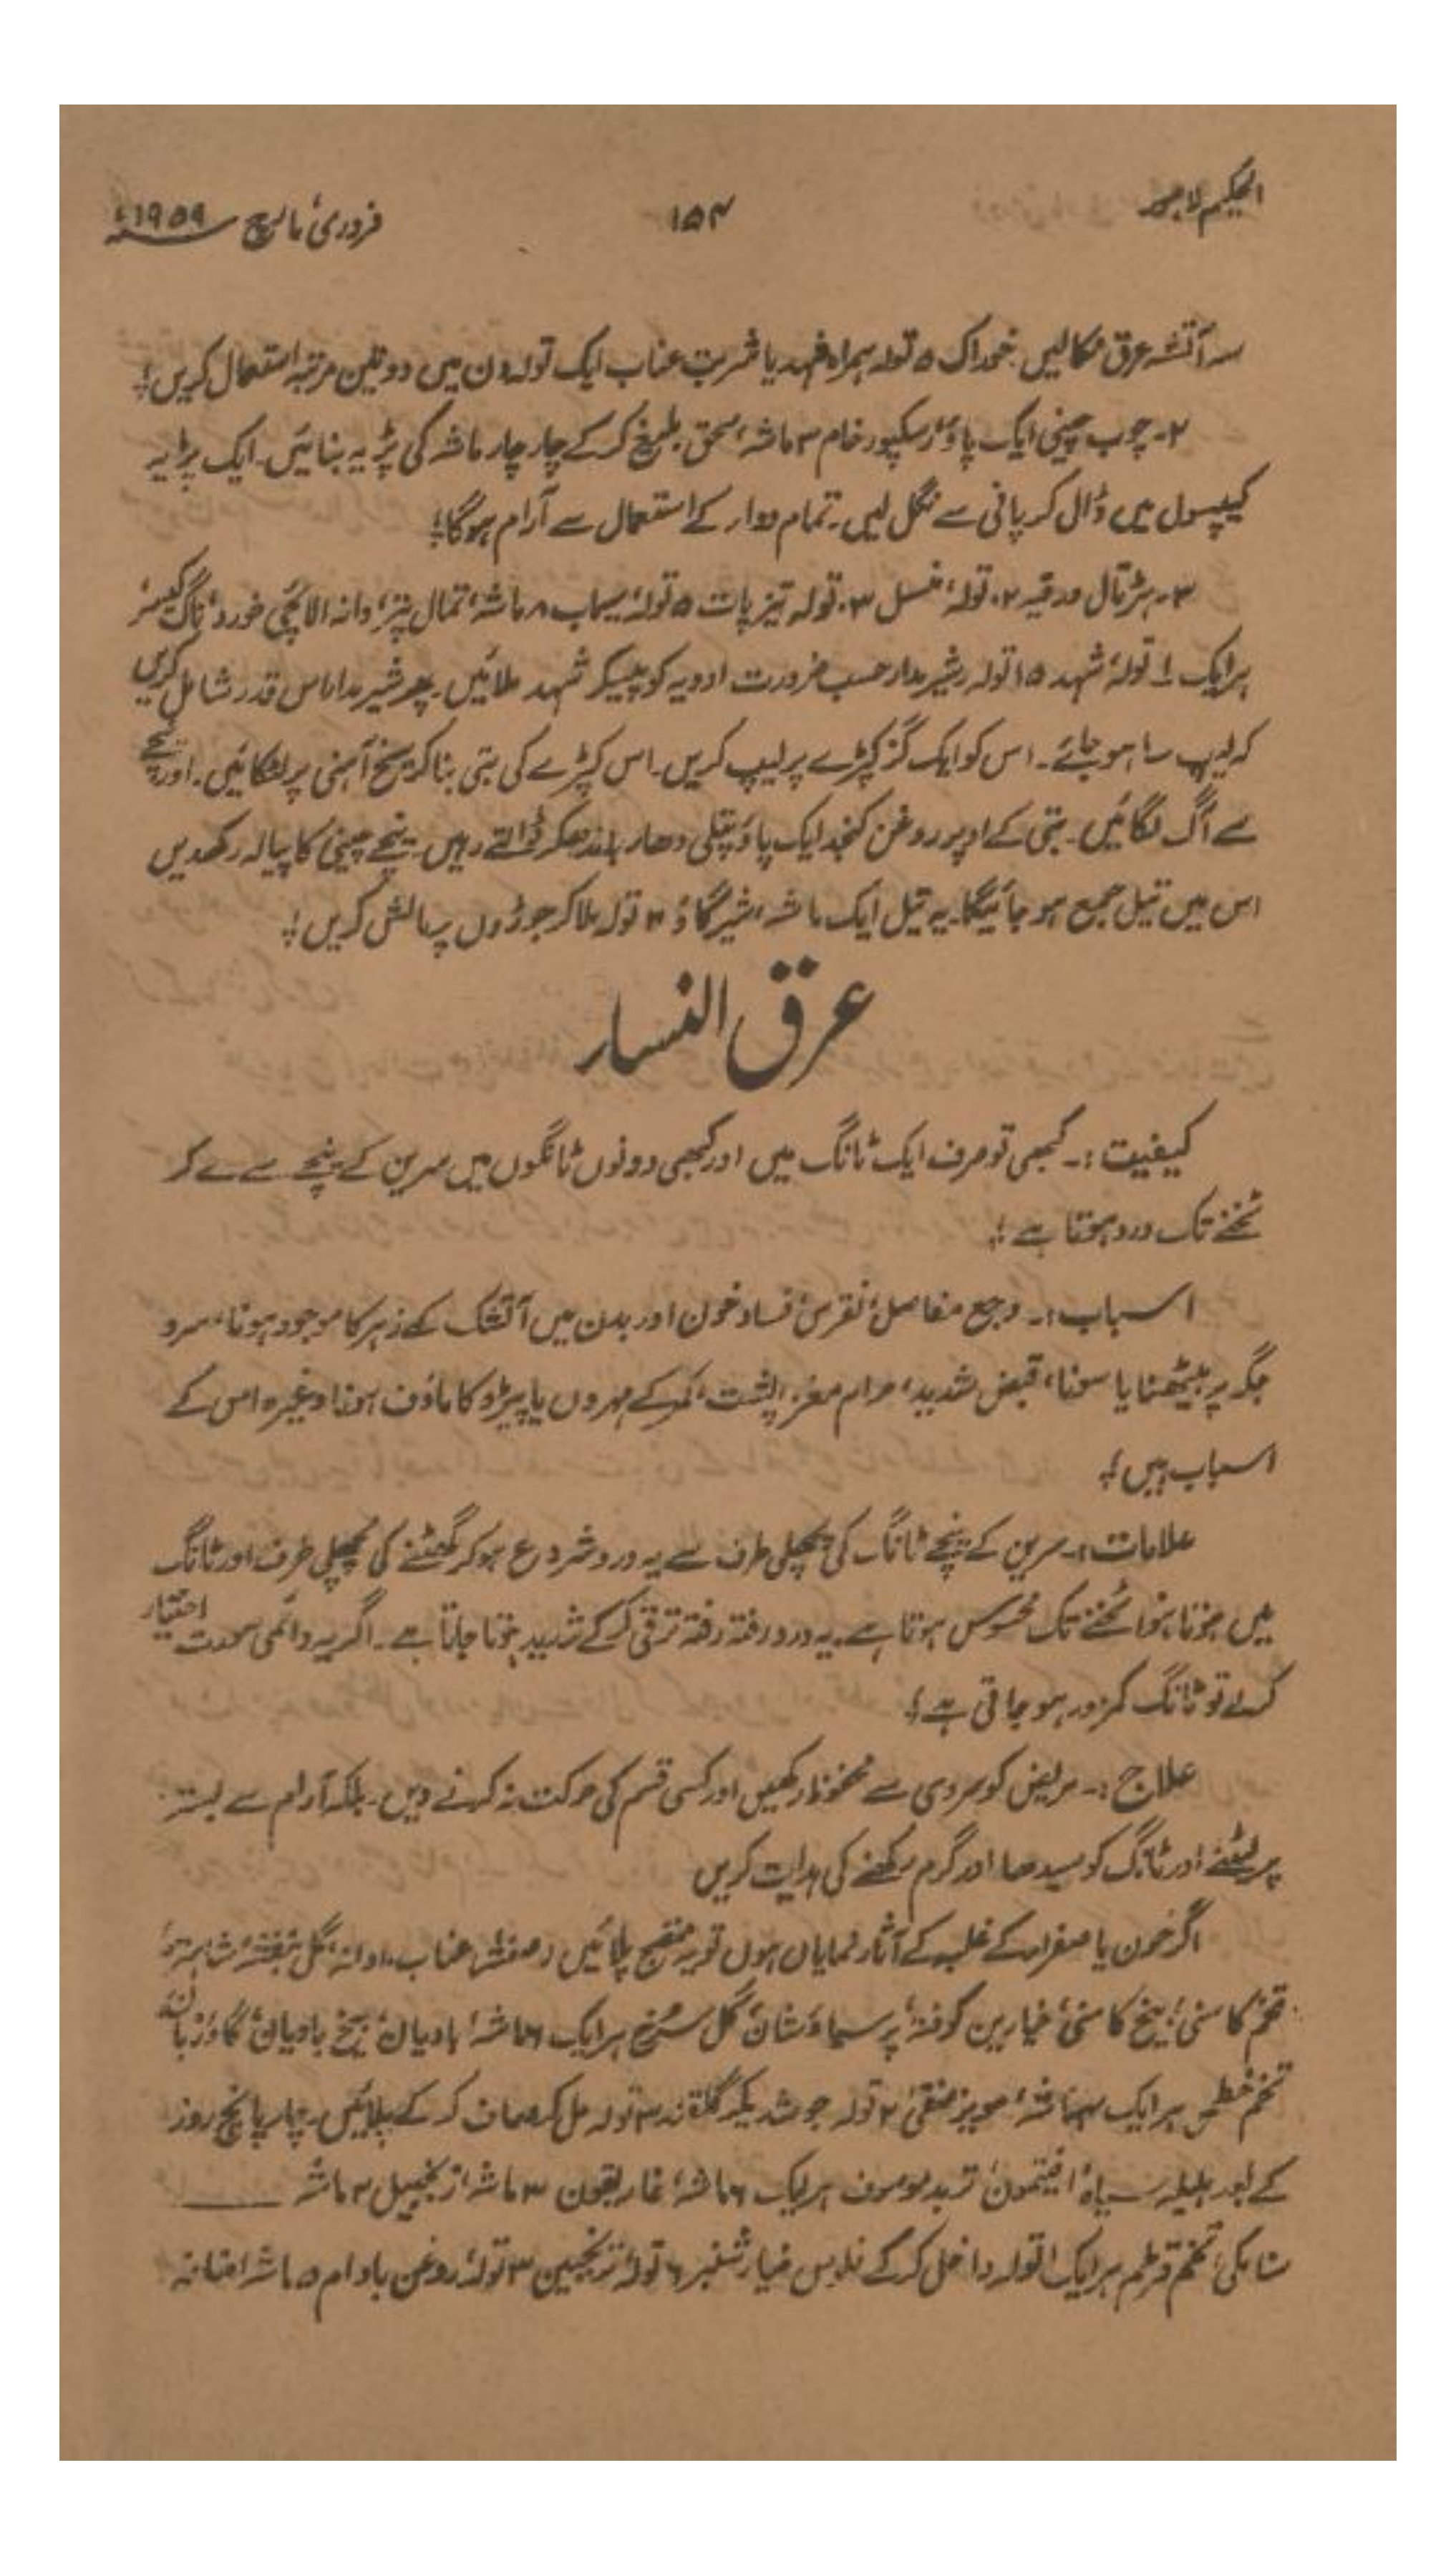 الحکیم لاہور
۱۵۴
فروری، مارچ ۱۹۵۹ء
سہ آتشہ عرق نکالیں۔ خوراک ۵ تولہ ہمراہ شہد یا شربت عناب ایک تولہ دن میں دو تین مرتبہ استعمال کریں؛
۲۔ چوب چینی ایک پاؤ، رسکپور خام ۳ ماشہ، سحق بلیغ کرکے چار چار ماشہ کی پڑیہ بنائیں۔ ایک پڑیہ
کیپسول میں ڈال کر پانی سے نگل لیں۔ تمام دوار کے استعمال سے آرام ہوگا؛
۳۔ ہڑتال ورقیہ ۲۰ تولہ، منسل ۳۰ تولہ تیزپات ۵ تولہ، سیماب ۸ ماشہ، تمال پتر، دانہ الائچی خورد، ناگ کیسر
ہرایک ۱ تولہ، شہد ۱۵ تولہ رشیر مدار حسب ضرورت ادویہ کو پیسکر شہد ملائیں۔ پھر شیر مدار اس قدر شامل کریں
کہ لیپ سا ہو جائے۔ اس کو ایک گز کپڑے پر لیپ کریں۔ اس کپڑے کی بتی بنا کر سیخ آہنی پر لٹکائیں۔ اور نیچے
سے آگ لگائیں۔ بتی کے اوپر روغن کنجد ایک پاؤ پتلی دھار باندھکر ڈالتے رہیں۔ نیچے چینی کا پیالہ رکھدیں
اس میں تیل جمع ہو جائیگا۔ یہ تیل ایک ماشہ، شیرگاؤ ۴ تولہ ملا کر جوڑوں پر مالش کریں؛
عرق النسار
کیفیت:۔ کبھی تو صرف ایک ٹانگ میں اور کبھی دونوں ٹانگوں میں سرین کے نیچے سے لے کر
ٹخنے تک درد ہوتا ہے؛
اسباب:۔ وجع مفاصل، نقرس، فساد خون اور بدن میں آتشک کے زہر کا موجود ہونا، سرد
جگہ پر بیٹھنا یا سونا، قبض شدید، حرام مغز، پشت، کمر کے مہروں یا پیڑو کا ماؤف ہونا وغیرہ اس کے
اسباب ہیں؛
علامات:۔ سرین کے نیچے ٹانگ کی پچھلی طرف سے یہ درد شروع ہو کر گھٹنے کی پچھلی طرف اور ٹانگ
میں ہوتا ہوا ٹخنے تک محسوس ہوتا ہے۔ یہ درد رفتہ رفتہ ترقی کرکے شدید ہوتا جاتا ہے۔ اگر یہ دائمی صورت اختیار
کرلے تو ٹانگ کمزور ہو جاتی ہے؛
علاج:۔ مریض کو سردی سے محفوظ رکھیں اور کسی قسم کی حرکت نہ کرنے دیں۔ بلکہ آرام سے بستر
پر لیٹنے اور ٹانگ کو سیدھا اور گرم رکھنے کی ہدایت کریں
اگر خون یا صفرار کے غلبہ کے آثار نمایاں ہوں تو یہ منضج پلائیں عناب ۱۰ دانہ، گل بنفشہ، شاہترہ،
تخم کاسنی، بیخ کاسنی، خیارین کوفتہ، پرسیاؤشان، گل سرخ ہرایک ۶ ماشہ، بادیان، بیخ بادیان، گاؤزبان،
تخم خطمی ہرایک ماشہ، مویز منقیٰ ۲ تولہ جوشدیکر گلقند ۳ تولہ مل کر صاف کرکے پلائیں۔ چار پانچ روز
کے بعد ہلیلہ سیاہ، افتیمون، تربد موصوف ہرایک ۶ ماشہ، غاریقون ۳ ماشہ، زنجبیل ۳ ماشہ
سنا مکی، تخم قرطم ہرایک ۱ تولہ داخل کرکے فلوس خیارشنبر ۶ تولہ، ترنجبین ۳ تولہ، روغن بادام ۵ ماشہ اضافہ